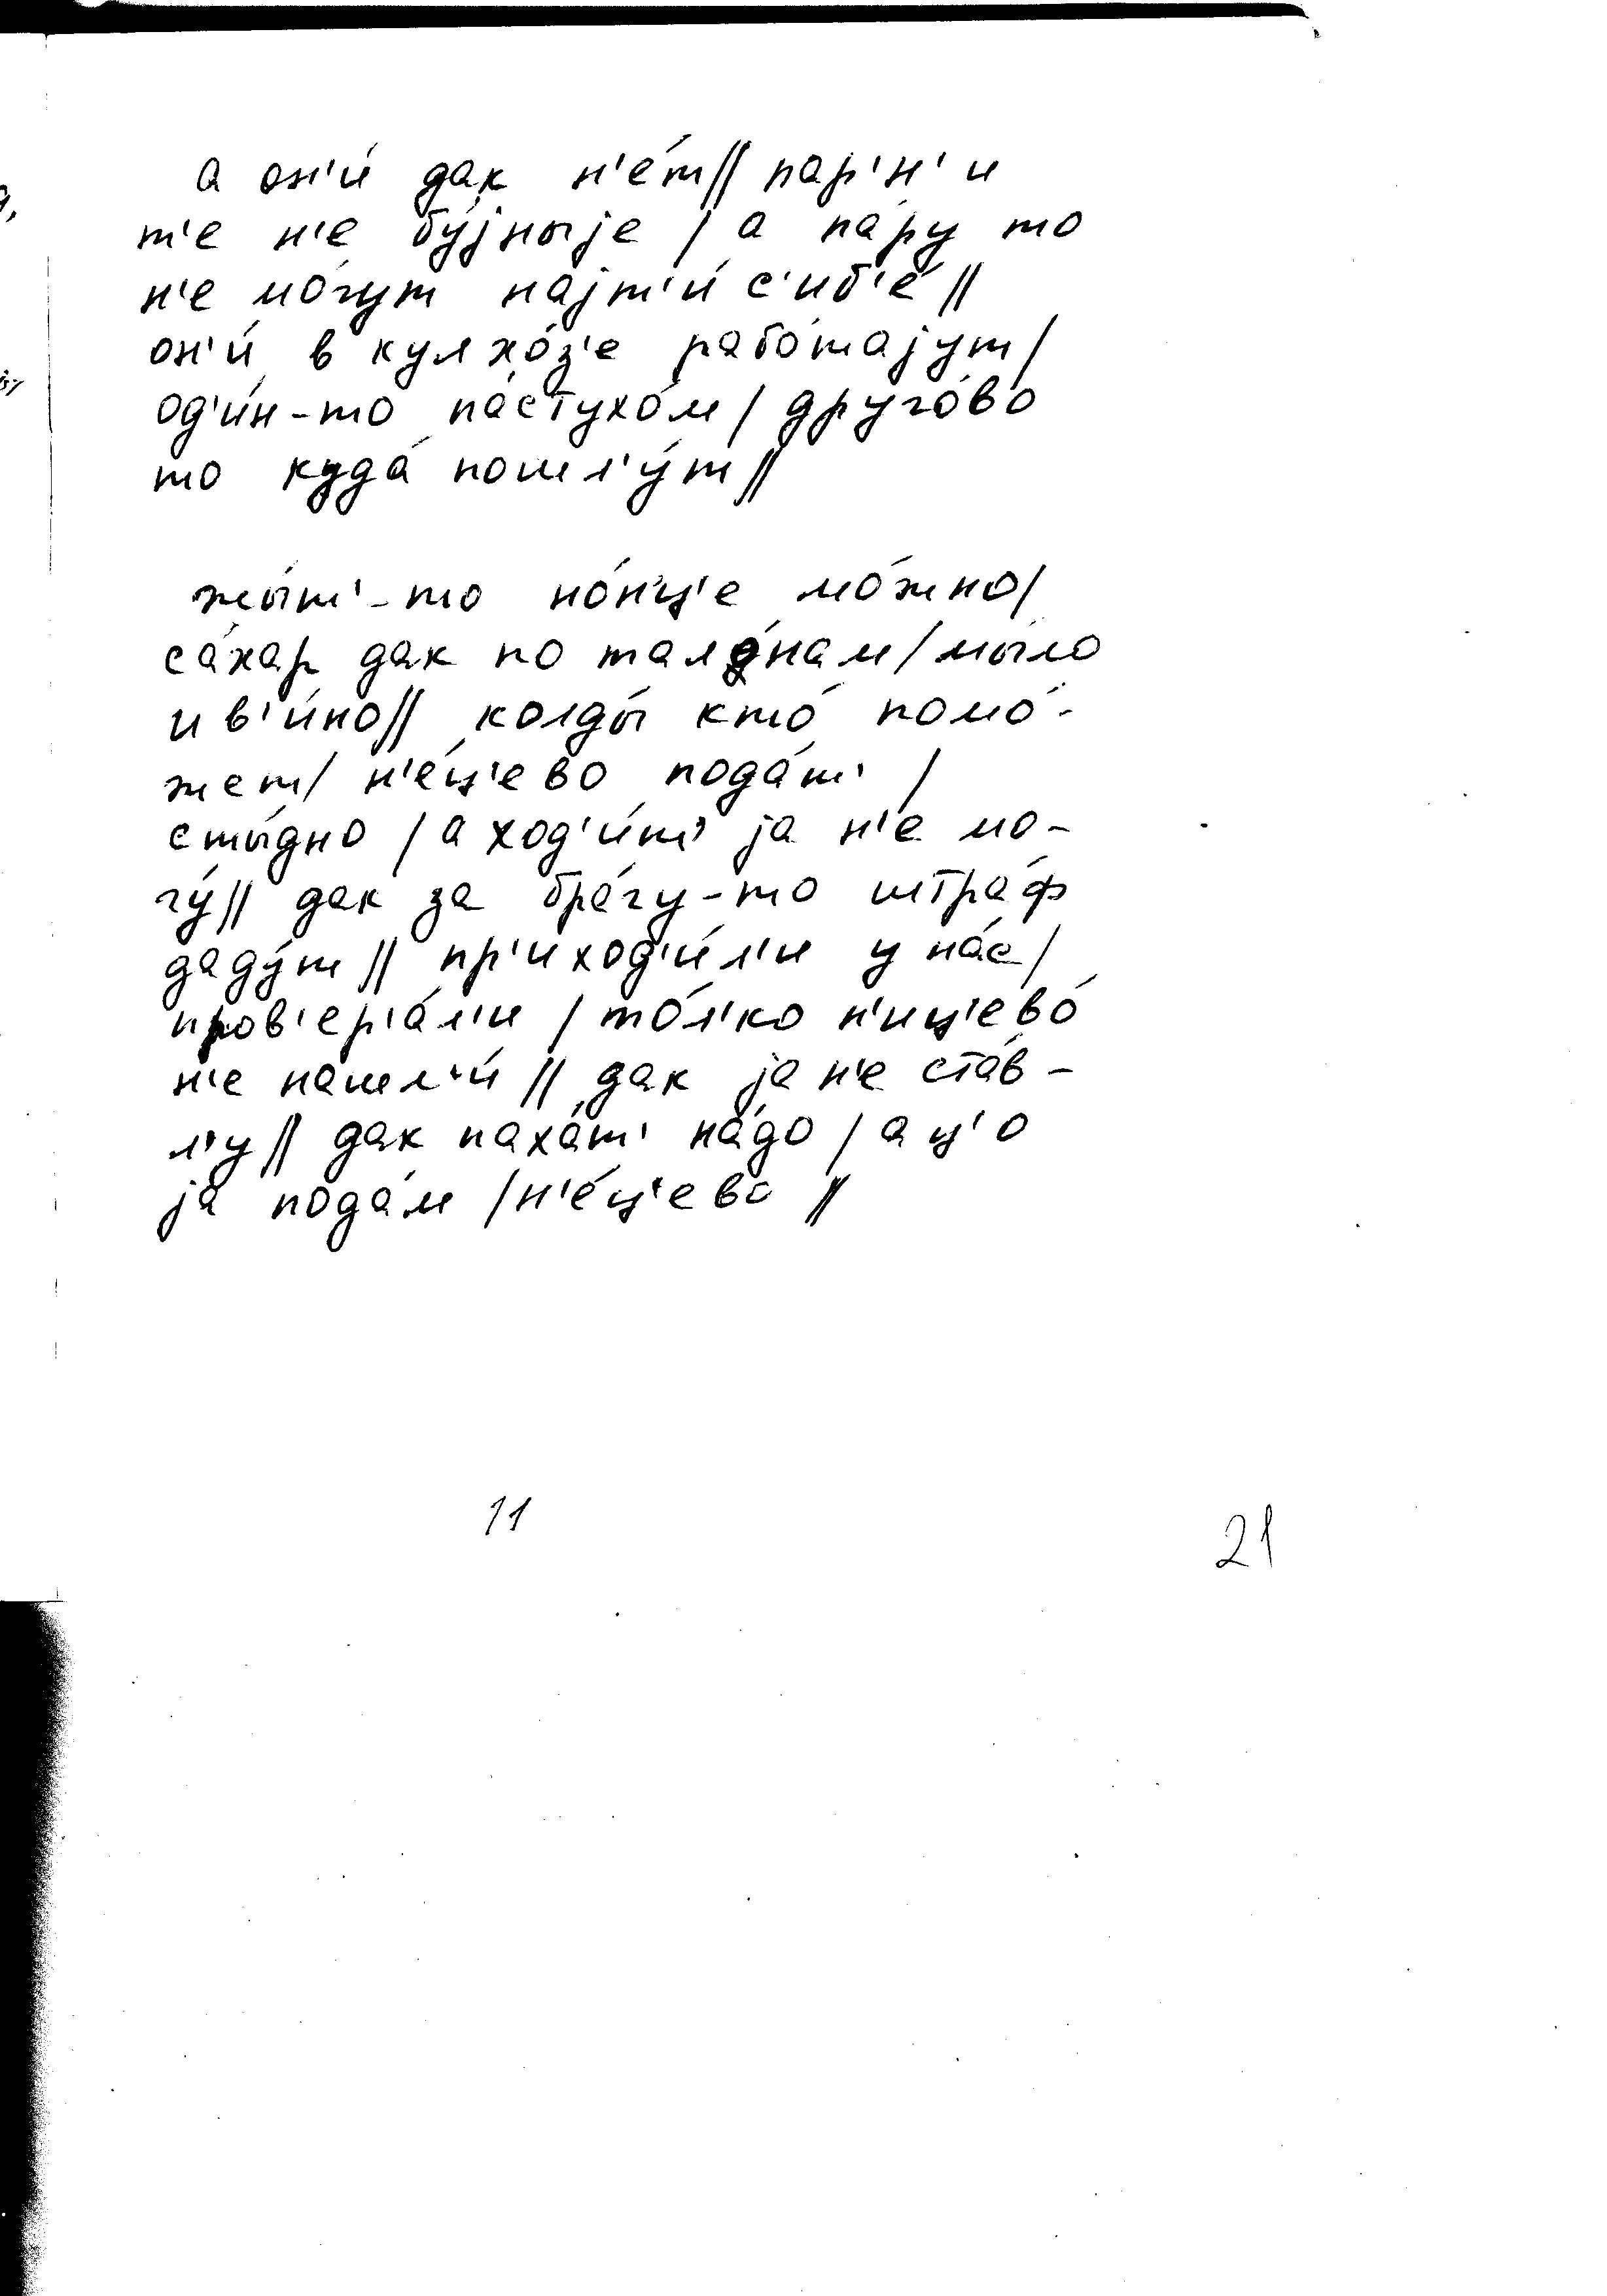 а он'и́ дак н'е́т// пар'н'и
т'е н'е бу́јныје / а па́ру то
н'е мо́гут најт'и́ с'иб'е́ //
он'и́ в кулхо́з'е рабо́тајут/
од'и́н-то пастухо́м / друго́во
то куда́ пошл'у́т//
жы́т'-то но́н'ц'е мо́жно/
са́хар дак по тало́нам / мы́ло
и в'и́но// колды́ кто́ помо́-
жет/ н'е́ц'ево пода́т' /
сты́дно / а ход'и́т' ја н'е мо-
гу́// дак за бра́гу-то штра́ф
даду́т// пр'иход'и́л'и у на́с/
пров'ер'а́л'и / то́л'ко н'иц'ево́
н'е нашл'и́ // дак ја н'е ста́в-
л'у// дак паха́т' на́до / а ц'о
ја пода́м /н'е́ц'ево //
11
21